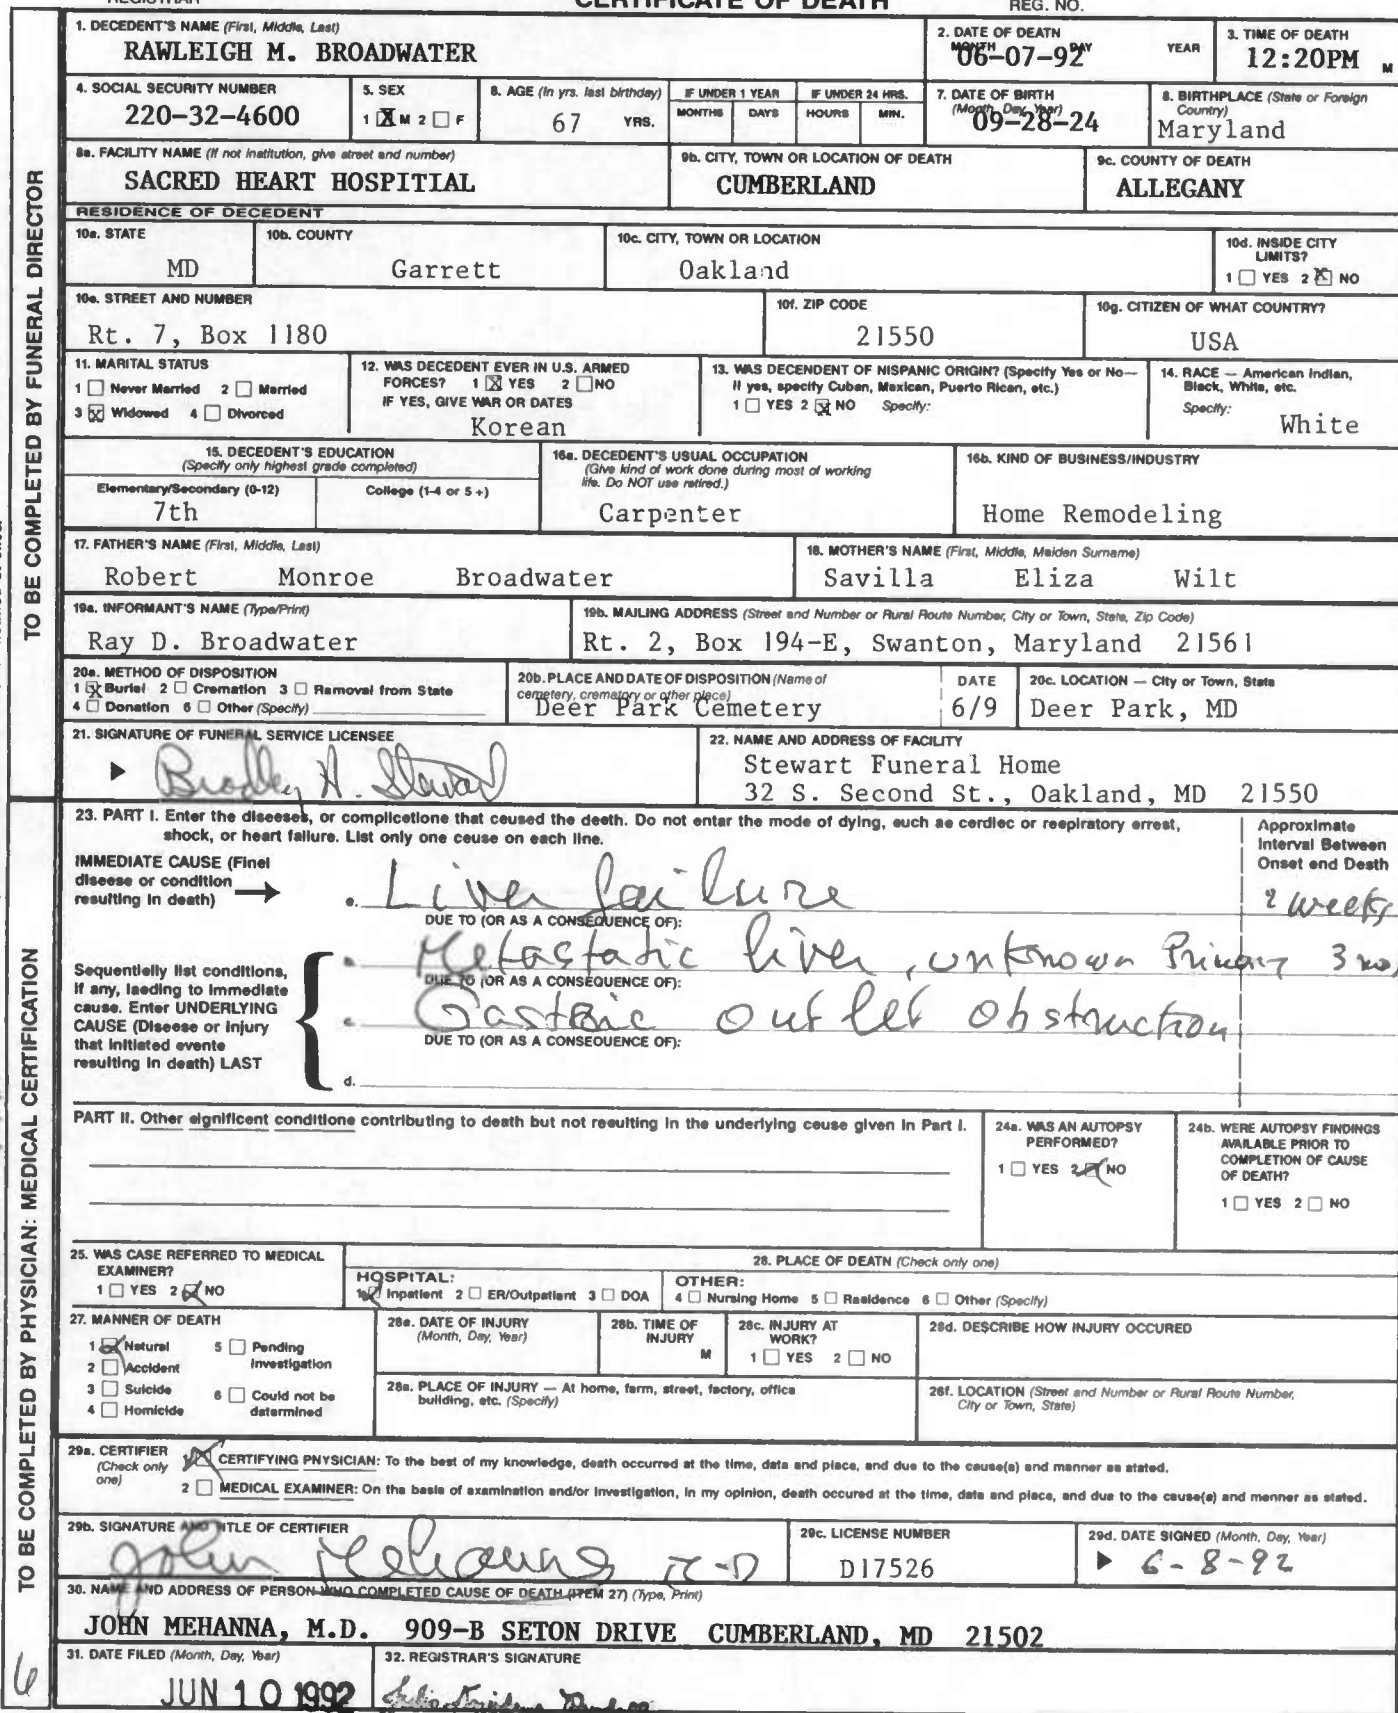 REGISTRAR CERTIFICATE OF DEATH REG. NO.
TO BE COMPLETED BY FUNERAL DIRECTOR
1. DECEDENT'S NAME (First, Middle, Last)
RAWLEIGH M. BROADWATER
2. DATE OF DEATH
MONTH DAY YEAR
06-07-92
3. TIME OF DEATH
12:20PM M
4. SOCIAL SECURITY NUMBER
220-32-4600
5. SEX
1 X M 2 F
6. AGE (In yrs. last birthday)
67 YRS.
IF UNDER 1 YEAR
MONTHS DAYS
IF UNDER 24 HRS.
HOURS MIN.
7. DATE OF BIRTH
(Month, Day, Year)
09-28-24
8. BIRTHPLACE (State or Foreign Country)
Maryland
9a. FACILITY NAME (If not institution, give street and number)
SACRED HEART HOSPITIAL
9b. CITY, TOWN OR LOCATION OF DEATH
CUMBERLAND
9c. COUNTY OF DEATH
ALLEGANY
RESIDENCE OF DECEDENT
10a. STATE
MD
10b. COUNTY
Garrett
10c. CITY, TOWN OR LOCATION
Oakland
10d. INSIDE CITY LIMITS?
1 YES 2 X NO
10e. STREET AND NUMBER
Rt. 7, Box 1180
10f. ZIP CODE
21550
10g. CITIZEN OF WHAT COUNTRY?
USA
11. MARITAL STATUS
1 Never Married 2 Married
3 X Widowed 4 Divorced
12. WAS DECEDENT EVER IN U.S. ARMED
FORCES? 1 X YES 2 NO
IF YES, GIVE WAR OR DATES
Korean
13. WAS DECENDENT OF HISPANIC ORIGIN? (Specify Yes or No—
If yes, specify Cuban, Mexican, Puerto Rican, etc.)
1 YES 2 X NO Specify:
14. RACE — American Indian,
Black, White, etc.
Specify:
White
15. DECEDENT'S EDUCATION
(Specify only highest grade completed)
Elementary/Secondary (0-12) College (1-4 or 5+)
7th
16a. DECEDENT'S USUAL OCCUPATION
(Give kind of work done during most of working
life. Do NOT use retired.)
Carpenter
16b. KIND OF BUSINESS/INDUSTRY
Home Remodeling
17. FATHER'S NAME (First, Middle, Last)
Robert Monroe Broadwater
18. MOTHER'S NAME (First, Middle, Maiden Surname)
Savilla Eliza Wilt
19a. INFORMANT'S NAME (Type/Print)
Ray D. Broadwater
19b. MAILING ADDRESS (Street and Number or Rural Route Number, City or Town, State, Zip Code)
Rt. 2, Box 194-E, Swanton, Maryland 21561
20a. METHOD OF DISPOSITION
1 X Burial 2 Cremation 3 Removal from State
4 Donation 6 Other (Specify)
20b. PLACE AND DATE OF DISPOSITION (Name of
cemetery, crematory or other place)
Deer Park Cemetery
DATE
6/9
20c. LOCATION — City or Town, State
Deer Park, MD
21. SIGNATURE OF FUNERAL SERVICE LICENSEE
Bradley A. Stewart
22. NAME AND ADDRESS OF FACILITY
Stewart Funeral Home
32 S. Second St., Oakland, MD 21550
TO BE COMPLETED BY PHYSICIAN: MEDICAL CERTIFICATION
23. PART I. Enter the diseases, or complications that caused the death. Do not enter the mode of dying, such as cardiac or respiratory arrest,
shock, or heart failure. List only one cause on each line.
Approximate
Interval Between
Onset and Death
IMMEDIATE CAUSE (Final
disease or condition
resulting in death)
a. Liver failure 2 weeks
DUE TO (OR AS A CONSEQUENCE OF):
Sequentially list conditions,
if any, leading to immediate
cause. Enter UNDERLYING
CAUSE (Disease or injury
that initiated events
resulting in death) LAST
b. Metastatic liver, unknown Primary 3 mo,
DUE TO (OR AS A CONSEQUENCE OF):
c. Gastric outlet obstruction
DUE TO (OR AS A CONSEQUENCE OF):
d.
PART II. Other significant conditions contributing to death but not resulting in the underlying cause given in Part I.
24a. WAS AN AUTOPSY
PERFORMED?
1 YES 2 NO
24b. WERE AUTOPSY FINDINGS
AVAILABLE PRIOR TO
COMPLETION OF CAUSE
OF DEATH?
1 YES 2 NO
25. WAS CASE REFERRED TO MEDICAL
EXAMINER?
1 YES 2 NO
26. PLACE OF DEATH (Check only one)
HOSPITAL:
1 Inpatient 2 ER/Outpatient 3 DOA
OTHER:
4 Nursing Home 5 Residence 6 Other (Specify)
27. MANNER OF DEATH
1 Natural 5 Pending Investigation
2 Accident
3 Suicide 6 Could not be determined
4 Homicide
28a. DATE OF INJURY
(Month, Day, Year)
28b. TIME OF
INJURY
M
28c. INJURY AT
WORK?
1 YES 2 NO
28d. DESCRIBE HOW INJURY OCCURED
28e. PLACE OF INJURY — At home, farm, street, factory, office
building, etc. (Specify)
28f. LOCATION (Street and Number or Rural Route Number,
City or Town, State)
29a. CERTIFIER
(Check only
one)
CERTIFYING PHYSICIAN: To the best of my knowledge, death occurred at the time, date and place, and due to the cause(s) and manner as stated.
2 MEDICAL EXAMINER: On the basis of examination and/or investigation, in my opinion, death occured at the time, date and place, and due to the cause(s) and manner as stated.
29b. SIGNATURE AND TITLE OF CERTIFIER
John Mehanna M-D
29c. LICENSE NUMBER
D17526
29d. DATE SIGNED (Month, Day, Year)
6-8-92
30. NAME AND ADDRESS OF PERSON WHO COMPLETED CAUSE OF DEATH (ITEM 27) (Type, Print)
JOHN MEHANNA, M.D. 909-B SETON DRIVE CUMBERLAND, MD 21502
31. DATE FILED (Month, Day, Year)
JUN 10 1992
32. REGISTRAR'S SIGNATURE
6